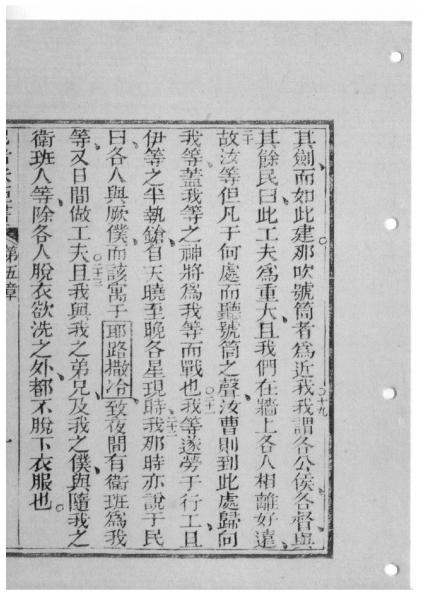 其劍而如此建那吹號筒者為近我我謂各公侯各督與
其餘民曰此工夫為重大且我們在牆上各人相離好遠
故汝等但凡于何處而聽號筒之聲汝曹則到此處歸向
我等蓋我等之神將為我等而戰也我等遂勞于行工且
伊等之半執鎗自天曉至晚各星現時我那時亦說于民
曰各人與厥僕而該寓于耶路撒冷致夜間有衛班為我
等又日間做工夫且我與我之弟兄及我之僕與隨我之
衛班人等除各人脫衣欲洗之外都不脫下衣服也
第五章